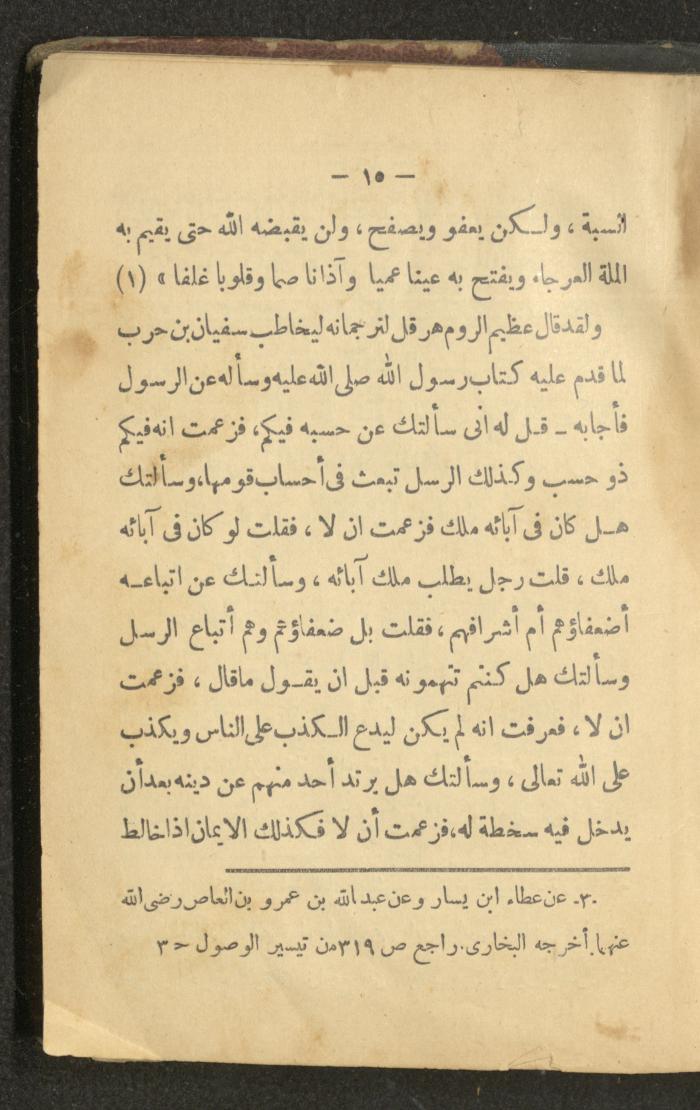 — ١٥ —
السبة ، ولكن يعفو ويصفح ، ولن يقبضه الله حتى يقيم به
الملة العرجاء ويفتح به عينا عميا وآذانا صما وقلوبا غلفا » (١)
ولقد قال عظيم الروم هرقل لترجمانه ليخاطب سفيان بن حرب
لما قدم عليه كتاب رسول الله صلى الله عليه وسأله عن الرسول
فأجابه – قل له انى سألتك عن حسبه فيكم، فزعمت انه فيكم
ذو حسب وكذلك الرسل تبعث فى أحساب قومها، وسألتك
هل كان فى آبائه ملك فزعمت ان لا ، فقلت لو كان فى آبائه
ملك ، قلت رجل يطلب ملك آبائه ، وسألتك عن اتباعه
أضعفاؤهم أم أشرافهم ، فقلت بل ضعفاؤهم وهم أتباع الرسل
وسألتك هل كنتم تتهمونه قبل ان يقول ماقال ، فزعمت
ان لا ، فعرفت انه لم يكن ليدع الكذب على الناس ويكذب
على الله تعالى ، وسألتك هل يرتد أحد منهم عن دينه بعد أن
يدخل فيه سخطة له، فزعمت أن لا فكذلك الايمان اذا خالط
٣- عن عطاء ابن يسار وعن عبد الله بن عمرو بن العاص رضى الله
عنهما. أخرجه البخارى. راجع ص ٣١٩ من تيسير الوصول ح ٣